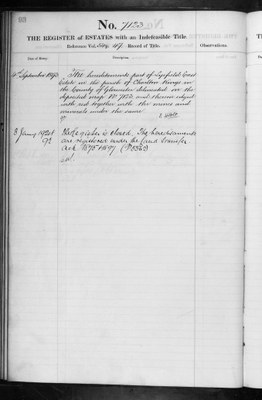 No. 7122
THE REGISTER of ESTATES with an Indefeasible Title
Reference Vol. 49. Record of Title.
Observations.
Date of Entry.
Description.
September 1893
The hereditaments part of Lyefield Court
Estate in the parish of Charlton Kings in
the County of Gloucester delineated on the
deposited map No. 7122 and thereon edged
with red together with the mines and
minerals under the same
3 January 1924
The Register is closed. The hereditaments
are registered under the Land Transfer
Acts 1875 & 1897